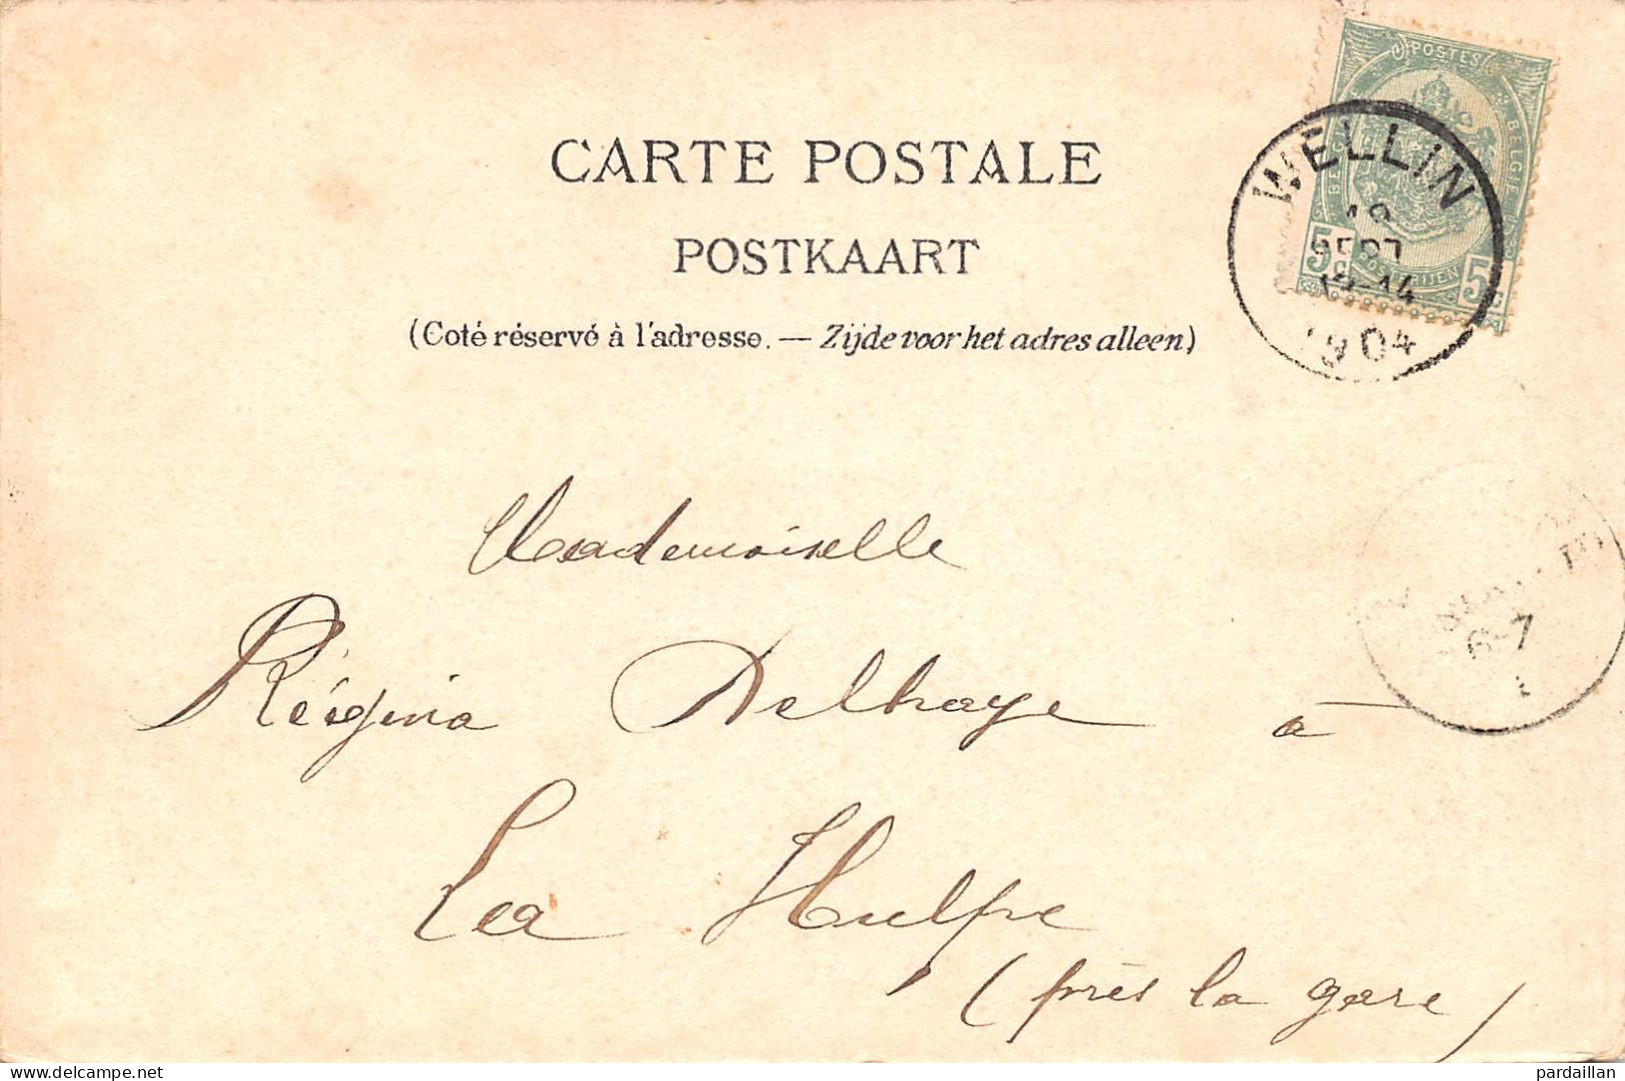 CARTE POSTALE
POSTKAART
(Coté réservé à l'adresse. — Zijde voor het adres alleen)
POSTES
BELGIE
5c 5c
WELLIN
SEPT
1904
6-7
Mademoiselle
Régina Delhaye à
La Hulpe
(près la gare)
delcampe.net
pardaillan